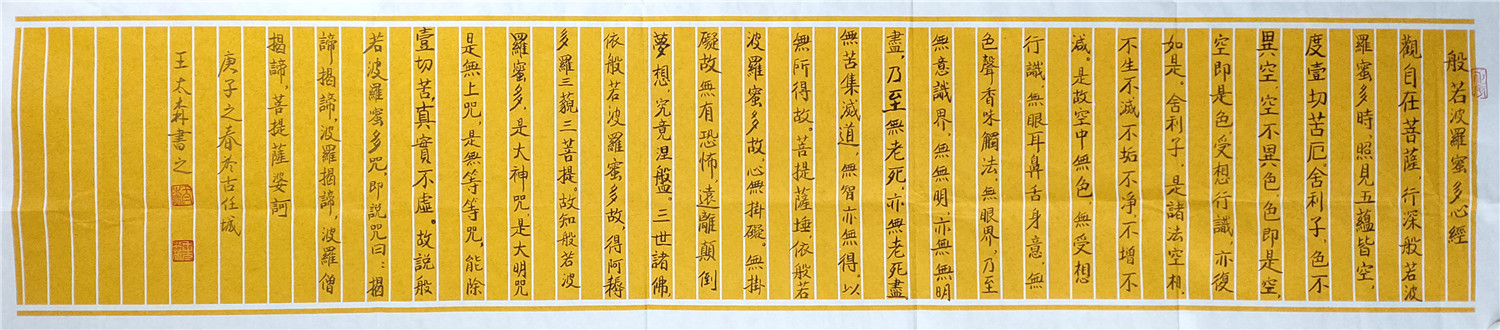 般若波羅蜜多心經
觀自在菩薩,行深般若波
羅蜜多時,照見五蘊皆空,
度壹切苦厄。舍利子,色不
異空,空不異色,色即是空,
空即是色,受想行識,亦復
如是。舍利子,是諸法空相,
不生不滅,不垢不净,不增不
減。是故空中無色,無受想
行識,無眼耳鼻舌身意,無
色聲香味觸法,無眼界,乃至
無意識界,無無明,亦無無明
盡,乃至無老死,亦無老死盡
無苦集滅道,無智亦無得。以
無所得故。菩提薩埵,依般若
波羅蜜多故,心無掛礙。無掛
礙故無有恐怖,遠離顛倒
夢想,究竟涅盤。三世諸佛,
依般若波羅蜜多故,得阿耨
多羅三藐三菩提。故知般若波
羅蜜多,是大神咒,是大明咒
是無上咒,是無等等咒,能除
壹切苦,真實不虛。故説般
若波羅蜜多咒,即説咒曰:揭
諦揭諦,波羅揭諦,波羅僧
揭諦,菩提薩婆訶
庚子之春於古任城
王太森書之